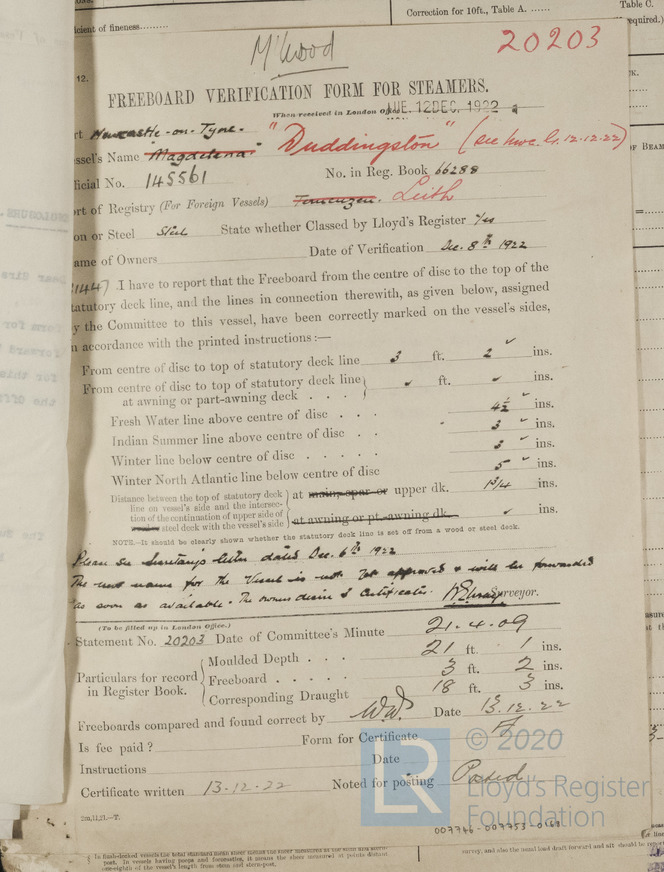 Correction for 10ft., Table A. ......
Table C.
required.)
icient of fineness.........
M'Wood
20203
12.
FREEBOARD VERIFICATION FORM FOR STEAMERS.
When received in London Office TUE. 12 DEC. 1922
rt Newcastle-on-Tyne.
"Duddingston" (see nwc. lr. 12-12-22)
essel's Name "Magdelena"
ficial No. 145561 No. in Reg. Book 66288
ort of Registry (For Foreign Vessels) Leith
on or Steel Steel State whether Classed by Lloyd's Register Yes
ame of Owners Date of Verification Dec. 8th 1922
I have to report that the Freeboard from the centre of disc to the top of the
tatutory deck line, and the lines in connection therewith, as given below, assigned
y the Committee to this vessel, have been correctly marked on the vessel's sides,
n accordance with the printed instructions :—
From centre of disc to top of statutory deck line 3 ft. 2 ins.
From centre of disc to top of statutory deck line
at awning or part-awning deck . . . ft. ins.
Fresh Water line above centre of disc . . . 4½ ins.
Indian Summer line above centre of disc . . 3 ins.
Winter line below centre of disc . . . . . 3 ins.
Winter North Atlantic line below centre of disc 5 ins.
Distance between the top of statutory deck
line on vessel's side and the intersec-
tion of the continuation of upper side of
steel deck with the vessel's side
at main, spar or upper dk. 1¾ ins.
at awning or pt.-awning dk. ins.
NOTE.—It should be clearly shown whether the statutory deck line is set off from a wood or steel deck.
Please see Secretary's letter dated Dec. 6th 1922
The new name for the Vessel is not yet approved & will be forwarded
as soon as available. The owners desire 2 Certificates. Surveyor.
(To be filled up in London Office.)
Statement No. 20203 Date of Committee's Minute 21.4.09
Particulars for record
in Register Book.
Moulded Depth . . . 21 ft. 1 ins.
Freeboard . . . . . 3 ft. 2 ins.
Corresponding Draught 18 ft. 3 ins.
Freeboards compared and found correct by Date 13.12.22
Is fee paid ? Form for Certificate
Instructions Date
Certificate written 13.12.22 Noted for posting Posted
2m,11,21.—T.
LR © 2020
Lloyd's Register
Foundation
007746-007753-0168